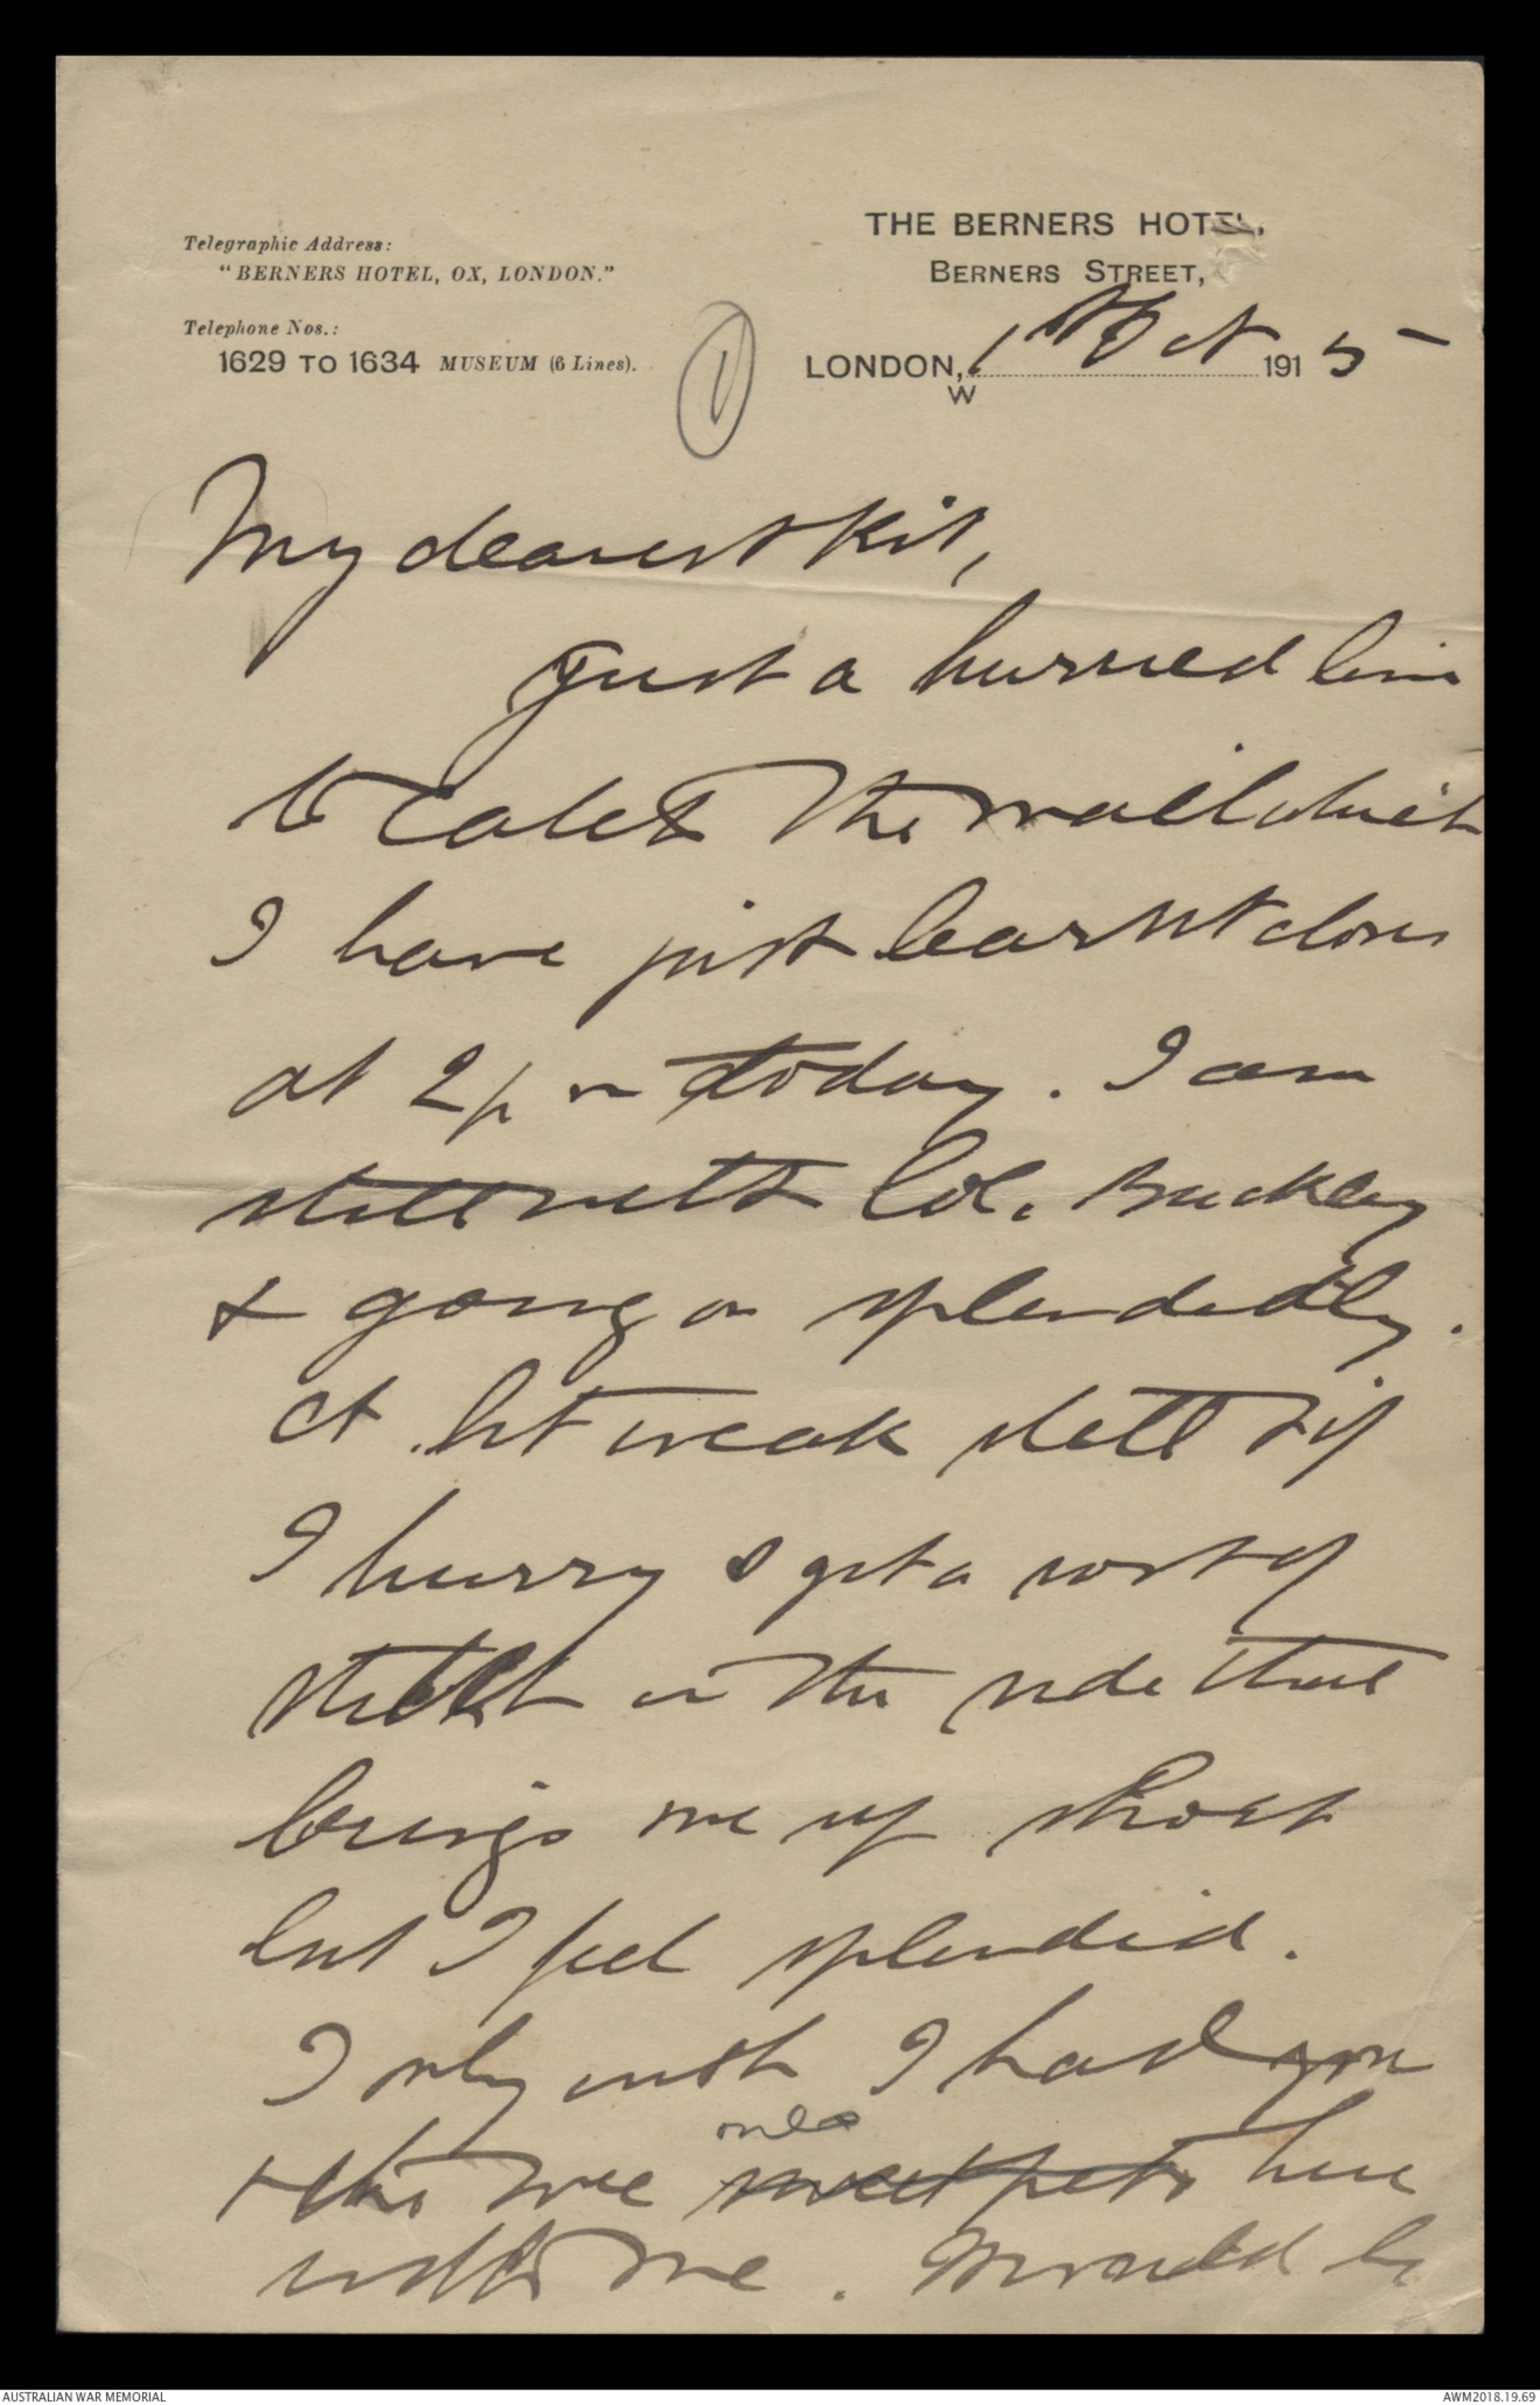 Telegraphic Address:
"BERNERS HOTEL, OX, LONDON."
Telephone Nos.:
1629 TO 1634 MUSEUM (6 Lines).
THE BERNERS HOTEL,
BERNERS STREET,
LONDON, 1st Oct 1915
W
1
My dearest Kit,
Just a hurried line
to catch the mail which
I have just learnt closes
at 2pm today. I am
still with Col. Buckley
& going on splendidly.
A bit weak still & if
I hurry I get a sort of
stitch in the side that
brings me up short
but I feel splendid.
I only wish I had you
& the wee sweet pets here
ones
with me. Would be
AUSTRALIAN WAR MEMORIAL
AWM2018.19.69